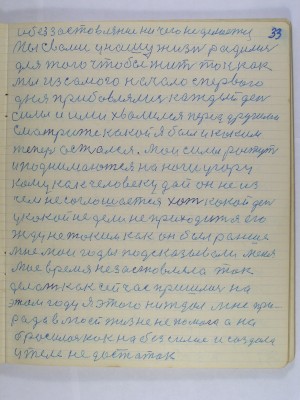 33
и без заставляния ничего не делаете
Мы с вами у нашу жизнь родились
для того чтобы жить то как
мы из самого начало с первого
дня прибовлялись каждый ден
силы и ими хвалился перед друзями
смотрите какой я был и каким
тепер остался. Мои силы ростут
и поднимаются на ноги у гору
кому как человеку дай он не из
чем не соглошается хот какой ден
у какой недели не приходится его
жду не таким как он был раньше
мне мои годы подсказывали меня
мое время не заставляла так
делат как сейчас пришлось на
этом году я этого не ждал мене при-
рада в моей жизне не помогла а на
бросилась как на без силие и создала
у теле недостаток